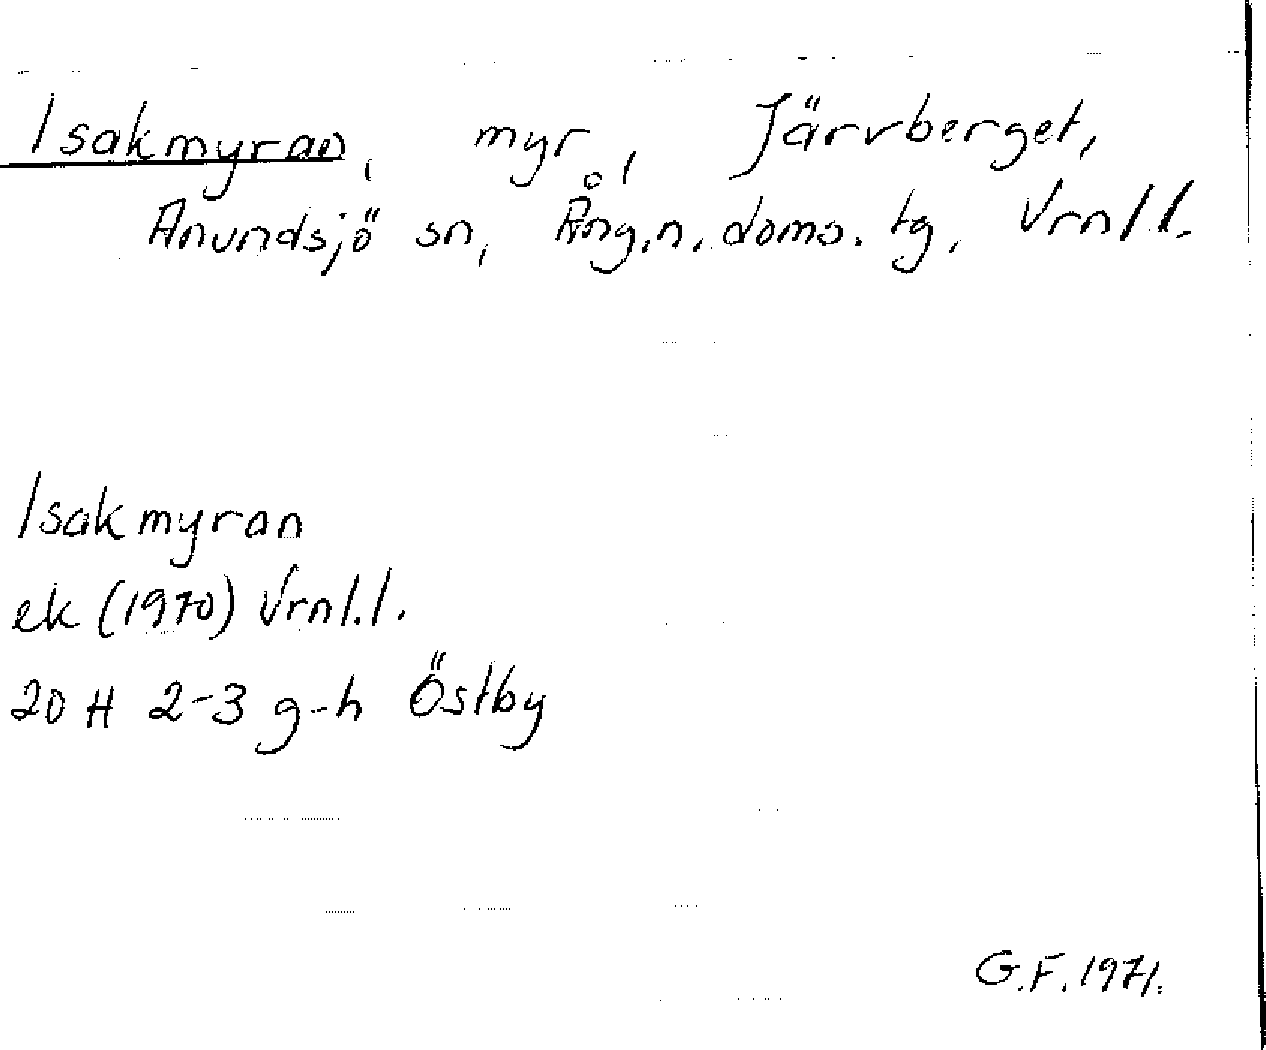 Isakmyran, myr, Järvberget,
Anundsjö sn, Ång.n. doms. tg, Vrnl l.
Isakmyran
ek (1970) Vrnl. l.
20 H 2-3 g-h Östby
G.F. 1971.